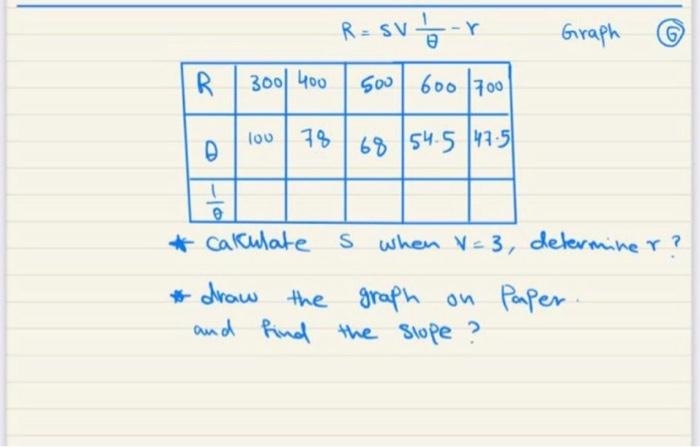 R = SV 1/θ - r Graph 6
R 300 400 500 600 700
θ 100 78 68 54.5 47.5
1/θ
* calculate S when V = 3, determine r ?
* draw the graph on Paper.
and find the slope ?